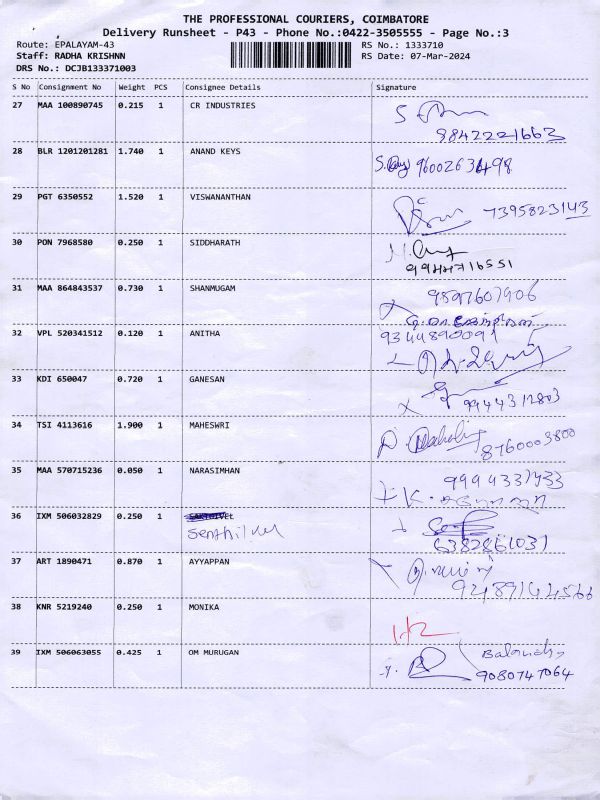 THE PROFESSIONAL COURIERS, COIMBATORE
Delivery Runsheet - P43 - Phone No.:0422-3505555 - Page No.:3
Route: EPALAYAM-43 RS No.: 1333710
Staff: RADHA KRISHNN RS Date: 07-Mar-2024
DRS No.: DCJB133371003
S No Consignment No Weight PCS Consignee Details Signature
27 MAA 100890745 0.215 1 CR INDUSTRIES
9842221663
28 BLR 1201201281 1.740 1 ANAND KEYS
29 PGT 6350552 1.520 1 VISWANANTHAN 7395823143
30 PON 7968580 0.250 1 SIDDHARATH
31 MAA 864843537 0.730 1 SHANMUGAM
32 VPL 520341512 0.120 1 ANITHA
9344890091
33 KDI 650047 0.720 1 GANESAN
9944312803
34 TSI 4113616 1.900 1 MAHESWRI
8760003800
35 MAA 570715236 0.050 1 NARASIMHAN
36 IXM 506032829 0.250 1
Senthilvel
6382861031
37 ART 1890471 0.870 1 AYYAPPAN
38 KNR 5219240 0.250 1 MONIKA
39 IXM 506063055 0.425 1 OM MURUGAN
9080747064